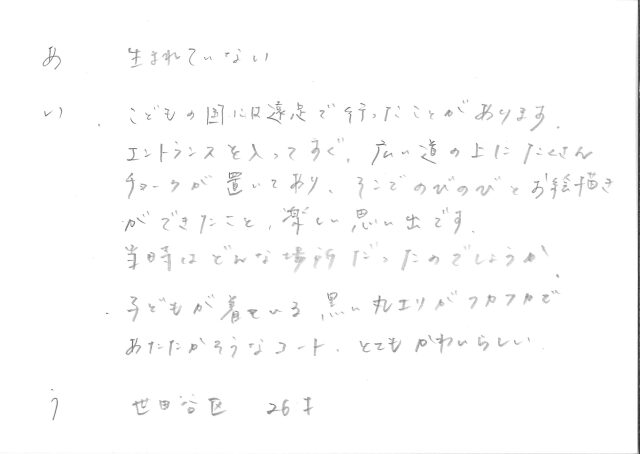 あ 生まれていない
い) ・こどもの国には遠足で行ったことがあります。
エントランスを入ってすぐ、広い道の上にたくさん
チョークが置いてあり、そこでのびのびとお絵描き
ができたこと、楽しい思い出です。
当時はどんな場所だったのでしょうか。
・子どもが着ている、黒い丸エリがフカフカで
あたたかそうなコート、とてもかわいらしい。
う 世田谷区 26才